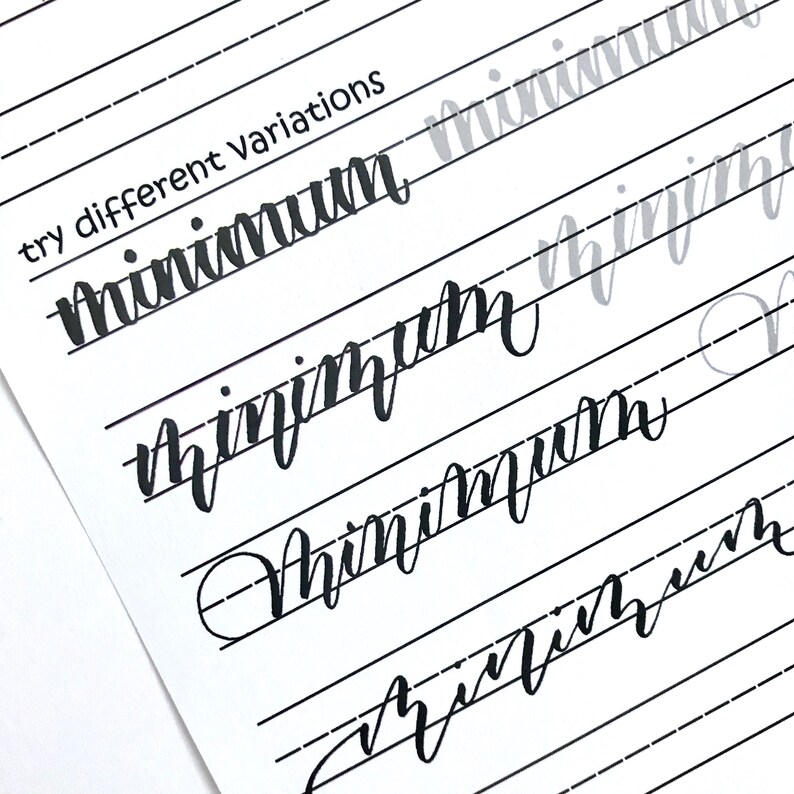 try different variations
minimum minimum
minimum minim
minimum
minimum